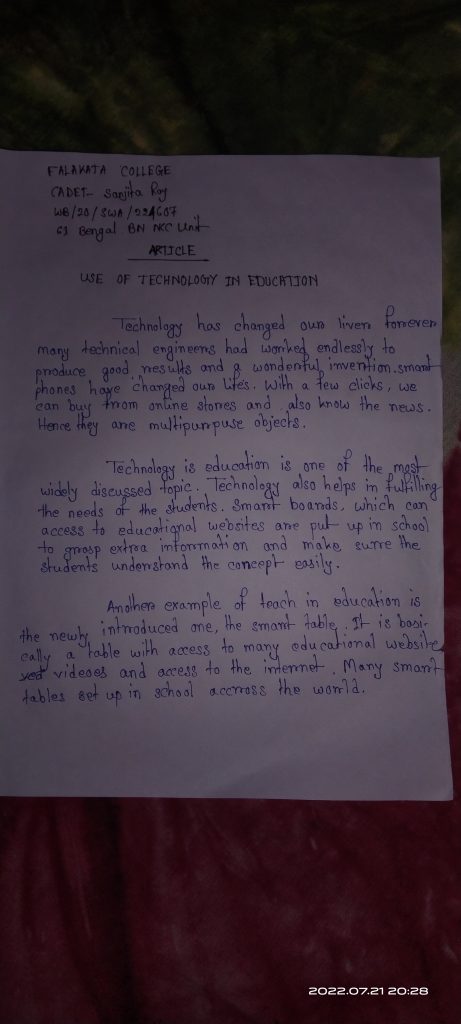 FALAKATA COLLEGE
CADET- Sanjita Roy
WB/20/SWA/224607
61 Bengal BN NCC Unit
ARTICLE
USE OF TECHNOLOGY IN EDUCATION
Technology has changed our liver forever
many technical engineers had worked endlessly to
produce good results and a wonderful invention.smart
phones have changed our lifes. With a few clicks, we
can buy from online stores and also know the news.
Hence they are multipurpuse objects.
Technology is education is one of the most
widely discussed topic. Technology also helps in fulfilling
the needs of the students. Smart boards, which can
access to educational websites are put up in school
to grasp extra information and make surre the
students understand the concept easily.
Another example of teach in education is
the newly introduced one, the smart table. It is basi-
cally a table with access to many educational website
videoes and access to the internet. Many smart
tables set up in school accross the world.
2022.07.21 20:28